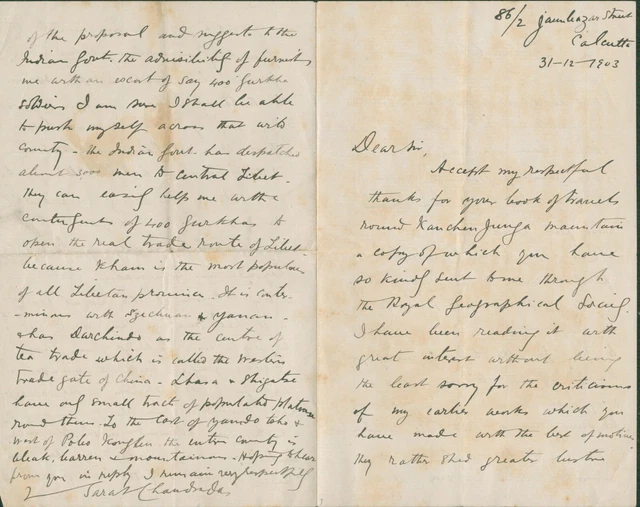 86/2 Jaun Bazar Street
Calcutta
31-12-1903
Dear Sir,
Accept my respectful
thanks for your book of travels
round Kanchen Junga mountain
a copy of which you have
so kindly sent to me through
the Royal Geographical Society.
I have been reading it with
great interest without being
the least sorry for the criticisms
of my earlier works which you
have made with the best of motives.
They rather shed greater lustre
of the proposal and suggests to the
Indian Govt. the admissibility of furnish
me with an escort of say 400 Gurkha
soldiers I am sure I shall be able
to push myself across that wild
country - the Indian Govt. has despatched
about 3000 men to Central Tibet.
They can easily help me with a
contingent of 400 Gurkhas to
open the real trade route of Tibet
because Kham is the most populous
of all Tibetan provinces. It is conter-
-minous with Szechuan & Yunan -
& has Darchindo as the centre of
tea trade which is called the Western
trade gate of China - Lhasa & Shigatse
have only small tract of populated plateau
round them. To the East of Yamdo tsho &
west of Poba the entire country is
bleak, barren & mountainous - Hoping to hear
from you in reply I remain very respectfully
Sarat Chandra Das